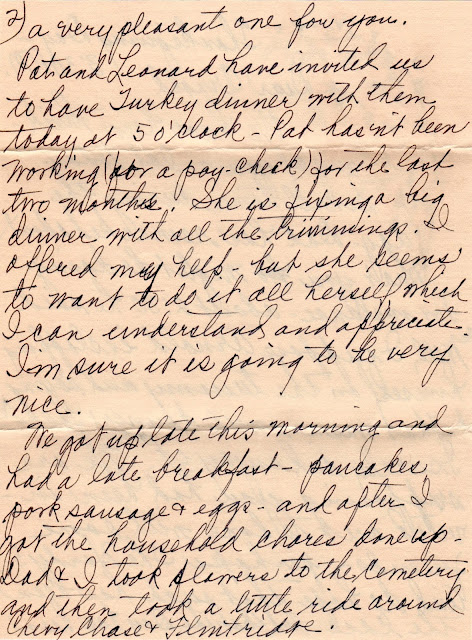 2) a very pleasant one for you.
Pat and Leonard have invited us
to have Turkey dinner with them
today at 5 o'clock - Pat hasn't been
working (for a pay-check) for the last
two months. She is fixing a big
dinner with all the trimmings. I
offered my help - but she seems
to want to do it all herself, which
I can understand and appreciate.
I'm sure it is going to be very
nice.
We got up late this morning and
had a late breakfast - pancakes
pork sausage & eggs - and after I
got the household chores done up -
Dad & I took flowers to the cemetery
and then took a little ride around
Chevy Chase & Flintridge.